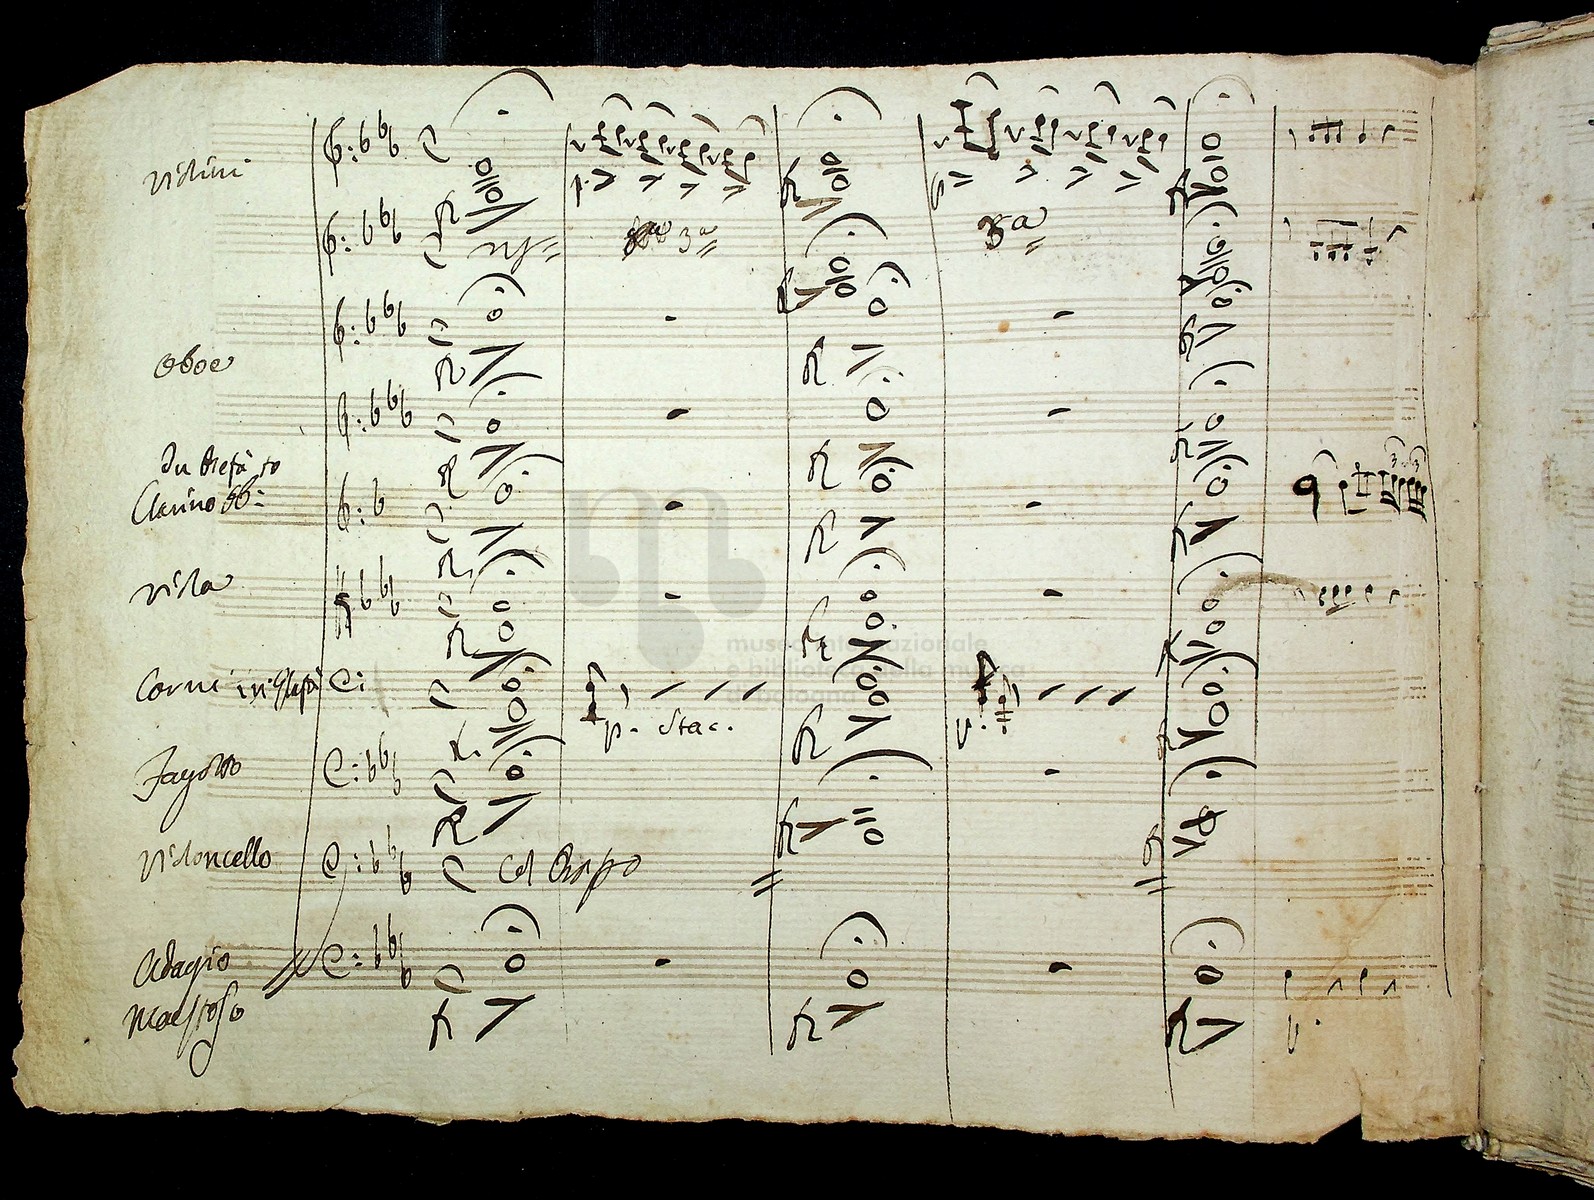 Violini
Oboe
In Elefà to
Clarino
Viola
Corni in Elafà
p. stac.
p.
Fagotto
Violoncello
Col Basso
Adagio
Maestoso
p.
3a
3a
museo internazionale
e biblioteca della musica
di bologna